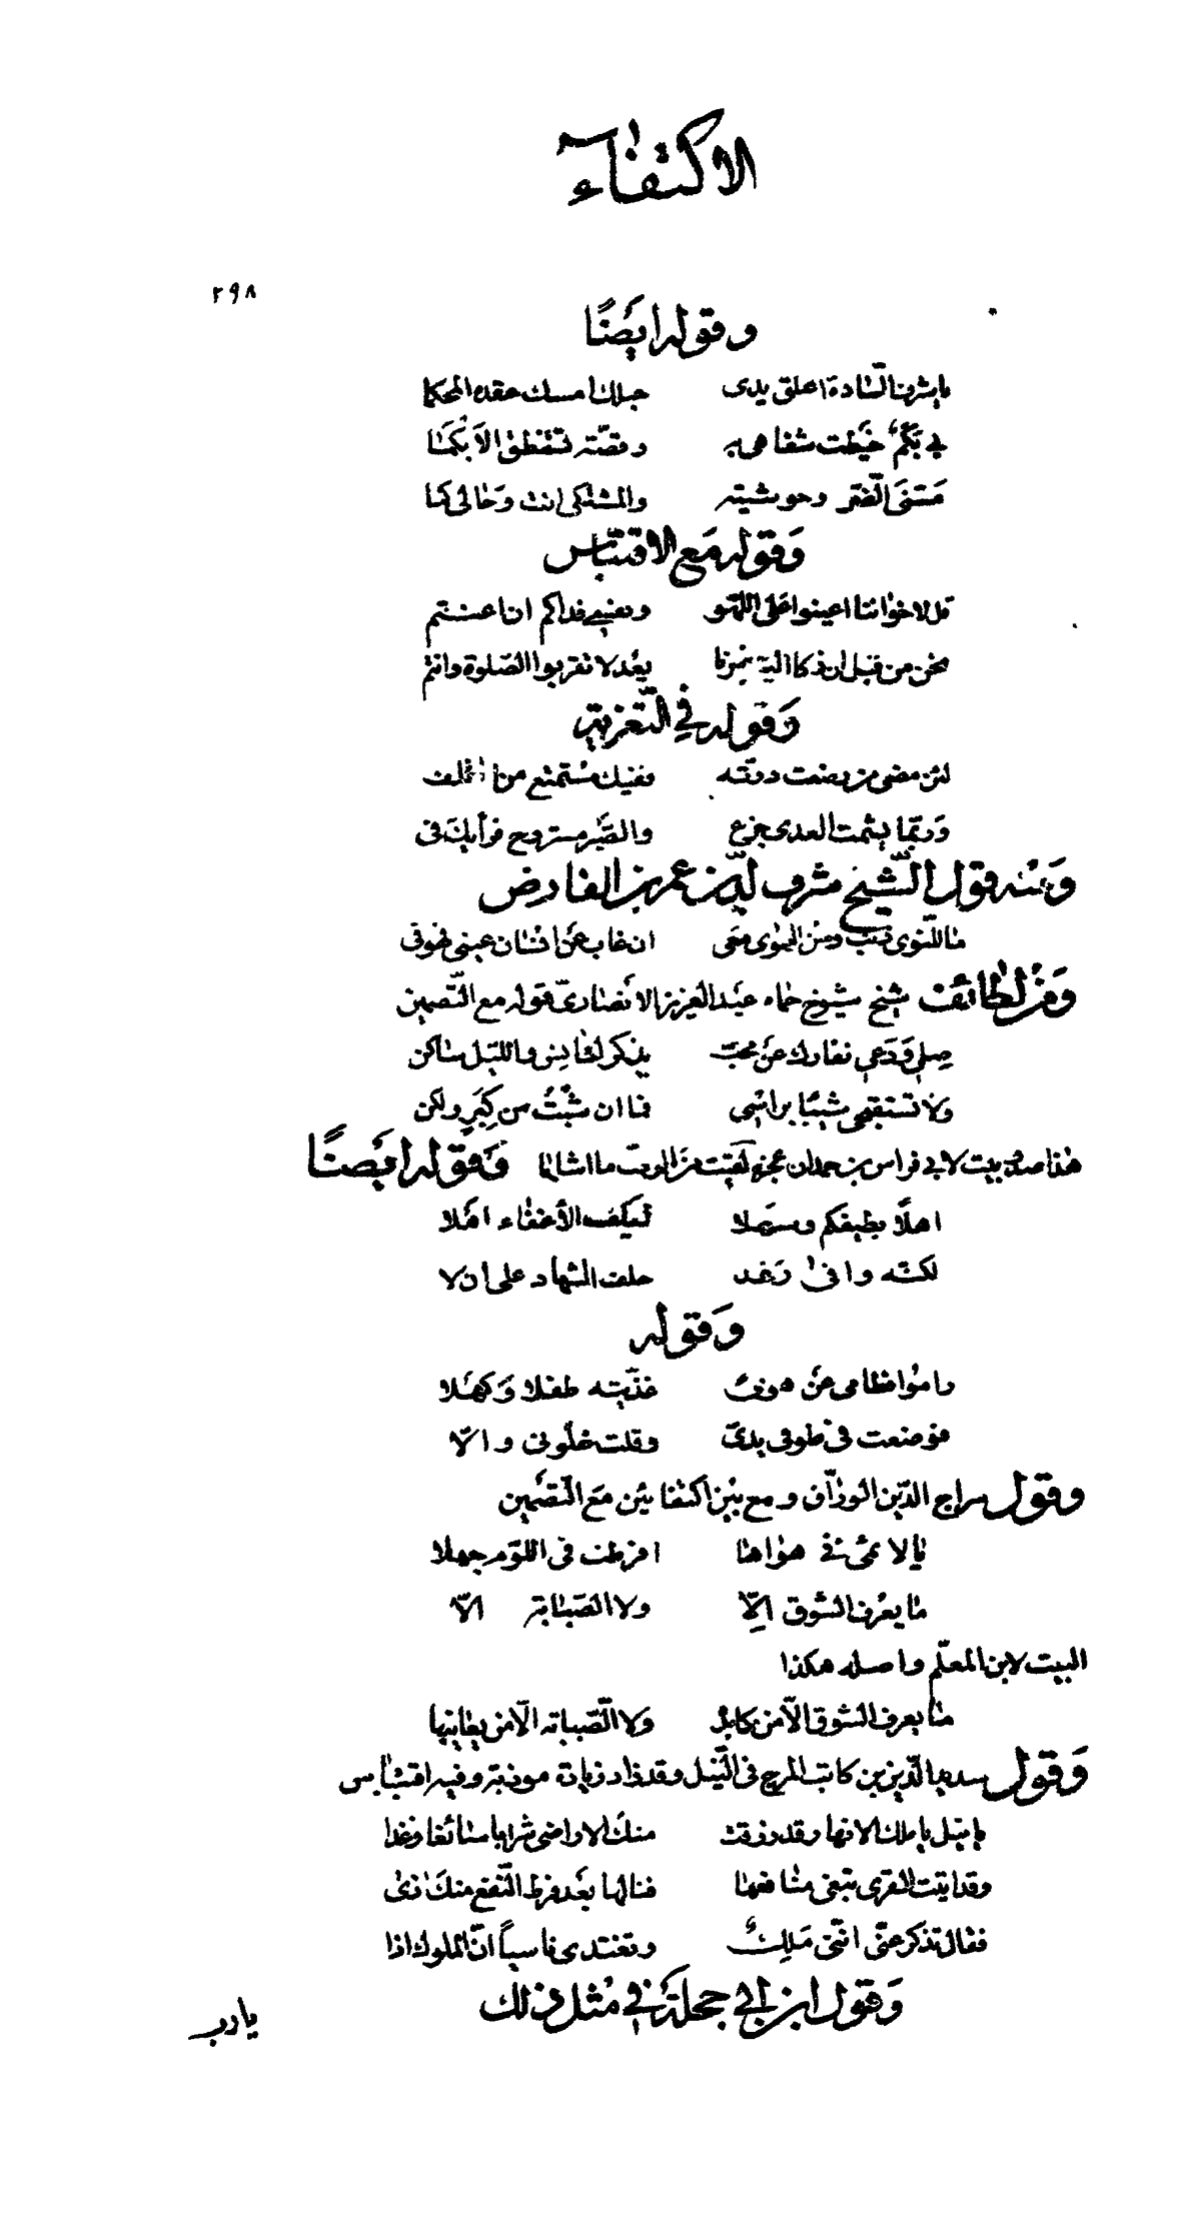 الاكتفاء
٢٩٨
وقوله ايضًا
يا شرف السّادة اعلق يدى حبلك امسك عقده المحكما
فى بَكَمٌ خَيَّطت شفاهى به وقصّته تنطق الاَبْكَمَا
مَسّنىَ الضّر وحوشيته والمشتكى انت وَحٰالى كما
وَقوله مَع الاقتباس
قل لاخوٰاننا اعينوا عَلى اللهو ونفسى فداكم ان اعنتم
نحن من قبل ان ذكا اليه نمرنا بعُد لا تقربوا الصّلوة وانتم
وَقوله فى التّعزية
لئن مضى من بضعت دوتّه ففيك مُستمتع من الخلف
وَربّما يشمت العدى جزع والصَّبر مستروح فرأيك فى
وَمنه قول الشّيخ شرف الدّين عمر بن الفارض
مٰا للنّوى ذنب ومن اهوٰى معَى ان غاب عَن انسٰان عينى فهو فى
وَمن لطائف شيخ شيوخ حماه عبَد العزيز الانَصٰارىّ قوله مع التّضمين
صِلى وَدعى نفارك عَن محبّ بذكرك اٰنسٍ والليَل سٰاكن
وَلا تستقبحى شيبًا برأسى فما ان شِبْتُ من كِبَرٍ ولكن
هٰذا صدر بيت لابى فراس بن حمدان عجزه لَقيت من الاحبّة ما اشابا وَقوله ايَضًا
اهلًا بطيفكم وسَهلا لو كنت للأغفٰاء اهَلا
لكنّه وافىٰ وَقد حلف السّهاد على ان لا
وَقوله
راموُا فطامى عَن هوىً غذّيته طفلا وَكهَلا
فوضعت فى طوقى يدىّ وقلت خلّونى والاّ
وقول سراج الدّين الورّاق ومع بيَن اكتفائَين مَع التّضَمين
يٰا لائمى فى هوٰاهٰا افرطت فى اللّوم جهلا
مٰا يعرف الشّوق الاّ ولا الصّبٰابة الاّ
البيت لابن المعلّم واصله هكذا
مٰا يعرف الشوق الاّ من يكابدُ وَلا الصّبابة الاّ من يعٰانيها
وَقول سعد الدّين بن كاتب المرج فى النّيل وقد زاد زيادة موذية وفيه اقتبٰاس
يا نيل يا ملك الانهار قد رزقت منك الاراضى شرابا سٰائغا وغذا
وقد اتيت القرى تبغى منٰافعهٰا فنالها بعَد فرط النّفع منك اذىٰ
فقال تذكر عنّى انّنى مَلِكٌ وتغتدى ناسياً انّ الملوك اذا
وَقول ابن ابى حجلة فى مثل ذلك
يارب